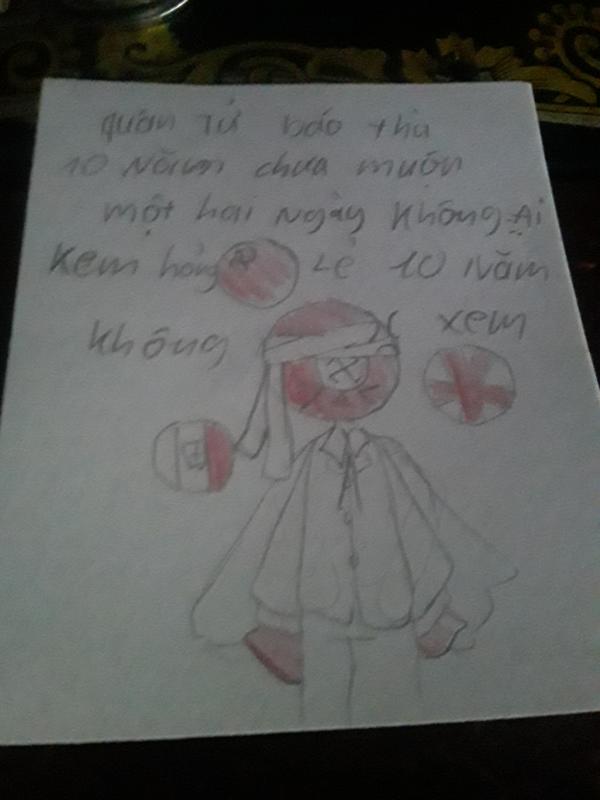 quân Tử báo thù
10 Năm chưa muộn
một hai ngày không Ai
xem hỏng Lẻ 10 Năm
không xem